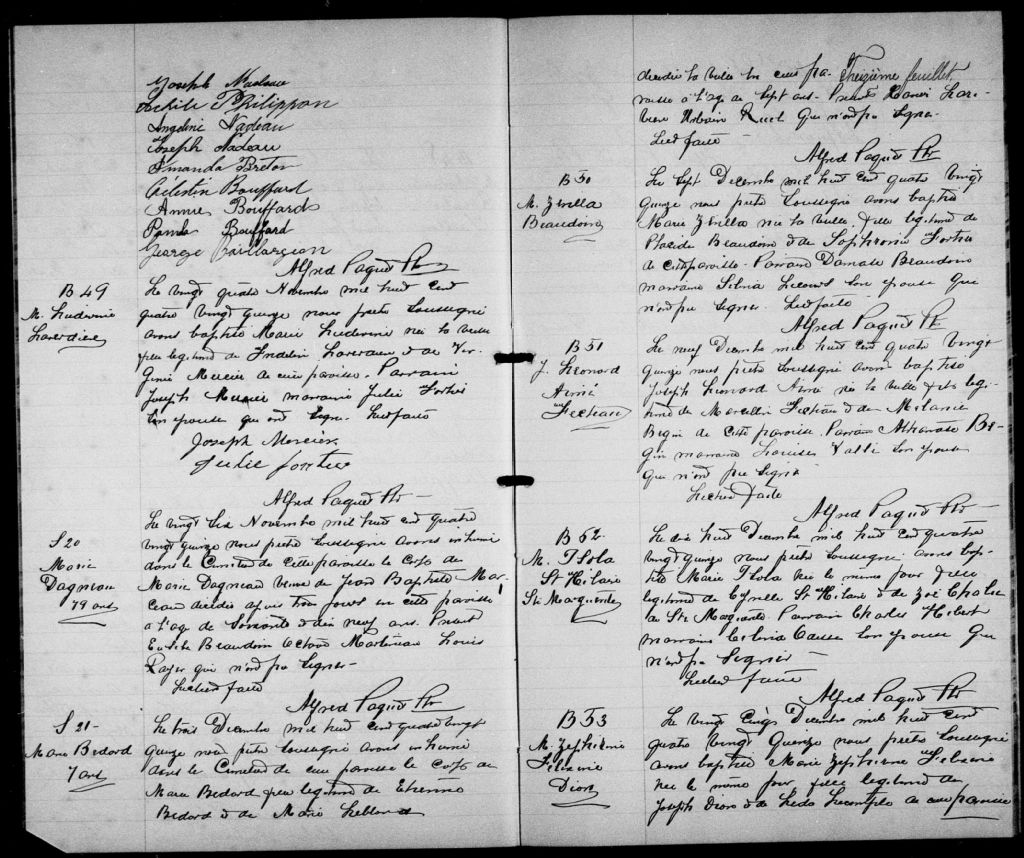 Joseph Nadeau
Philippon
Angelina Nadeau
Joseph Nadeau
Amanda Breton
Célestin Bouffard
Annie Bouffard
Bouffard
George Baillargeon
Alfred Paquet Ptr
B 49
M. Ludivine
Le vingt quatre Novembre mil huit cent
quatre vingt quinze nous pretre soussigné
avons baptisé Marie Ludivine née la veille
fille legitime de et de Vir
ginie Mercier de cette paroisse. Parrain
Joseph Mercier marraine Julie Fortier
son epouse qui ont signé. Lecture faite
Joseph Mercier
Julie Fortier
Alfred Paquet Ptr
S 20
Marie
Dagneau
79 ans
Le vingt six Novembre mil huit cent quatre
vingt quinze nous pretre soussigné avons inhumé
dans le Cimetiere de cette paroisse le corps de
Marie Dagneau veuve de Jean Baptiste Mar
ceau décédée depuis trois jours en cette paroisse
a l'age de soixante et dix neuf ans. Présent
Beaudoin Octave Martineau Louis
qui n'ont pu signer
Lecture faite
Alfred Paquet Ptr
S 21
Marie Bedard
7 ans
Le trois Decembre mil huit cent quatre vingt
quinze nous pretre soussigné avons inhumé
dans le Cimetiere de cette paroisse le corps de
Marie Bedard fille legitime de Etienne
Bedard et de Marie Leblond
Treizième feuillet
décédée la veille en cette pa-
roisse a l'age de sept ans. Présent Xavier Lari-
viere Urbain Ruel qui n'ont pu signer
Lect faite
Alfred Paquet Ptr
B 50
M. Zevilla
Beaudoin
Le sept Decembre mil huit cent quatre vingt
quinze nous pretre soussigné avons baptisé
Marie Zevilla née la veille fille legitime de
Placide Beaudoin et de Sophronie Fortier
de cette paroisse. Parrain Damase Beaudoin
marraine son epouse qui
n'ont pu signer. Lect faite
Alfred Paquet Ptr
B 51
J. Leonard
Aimé
Fecteau
Le neuf Decembre mil huit cent quatre vingt
quinze nous pretre soussigné avons baptisé
Joseph Leonard Aimé né la veille fils legi
time de Marcellin Fecteau et de Melanie
Begin de cette paroisse. Parrain Athanase Be-
gin marraine Louise Vallé son epouse
qui n'ont pu signer
Lecture faite
Alfred Paquet Ptr
B 52
M. Isola
St Hilaire
Ste Marguerite
Le dix huit Decembre mil huit cent quatre
vingt quinze nous pretre soussigné avons bap
tisé Marie Isola née le même jour fille
legitime de Cyrille St Hilaire et de Zoé
de Ste Marguerite Parrain Charles Hebert
marraine son epouse qui
n'ont pu signer
Lecture faite
Alfred Paquet Ptr
B 53
M. Zephirine
Dion
Le vingt cinq Decembre mil huit cent
quatre vingt quinze nous pretre soussigné
avons baptisé Marie Zephirine
née le même jour fille legitime de
Joseph Dion et de Leda Lecomte de cette paroisse